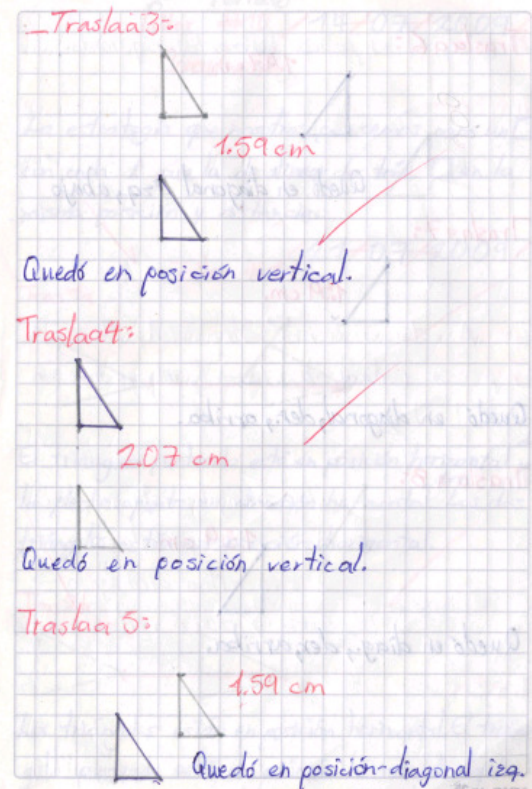 Traslaa3:
1.59 cm
Quedó en posición vertical.
Traslaa4:
2.07 cm
Quedó en posición vertical.
Traslaa 5:
1.59 cm
Quedó en posición-diagonal izq.